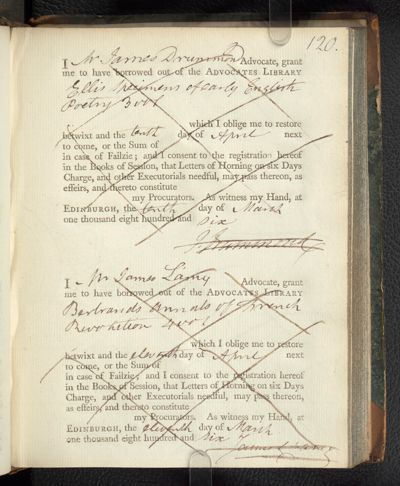 120.
I Mr James Drummond Advocate, grant
me to have borrowed out of the ADVOCATES LIBRARY
Ellis Specimens of early English
Poetry 3 voll
which I oblige me to restore
betwixt and the tenth day of April next
to come, or the Sum of
in case of Failzie; and I consent to the registration hereof
in the Books of Session, that Letters of Horning on six Days
Charge, and other Executorials needful, may pass thereon, as
effeirs, and thereto constitute
my Procurators. As witness my Hand, at
EDINBURGH, the tenth day of March
one thousand eight hundred and six
J Drummond
I Mr James Lamy Advocate, grant
me to have borrowed out of the ADVOCATES LIBRARY
Bertrands Annals of french
Revolution 4 voll
which I oblige me to restore
betwixt and the eleventh day of April next
to come, or the Sum of
in case of Failzie; and I consent to the registration hereof
in the Books of Session, that Letters of Horning on six Days
Charge, and other Executorials needful, may pass thereon,
as effeirs, and thereto constitute
my Procurators. As witness my Hand, at
EDINBURGH, the eleventh day of March
one thousand eight hundred and six
James